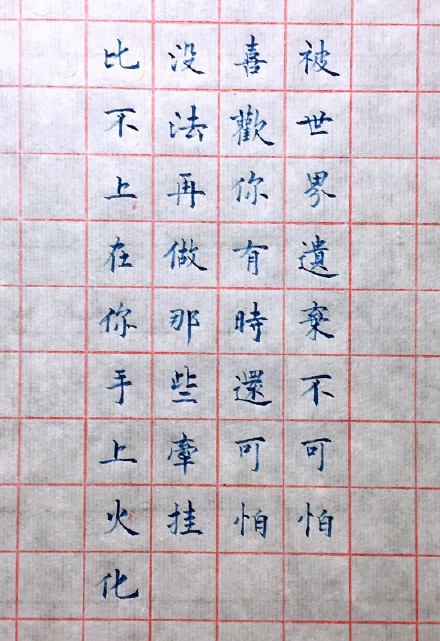 被世界遺棄不可怕
喜歡你有時還可怕
没法再做那些牽挂
比不上在你手上火化